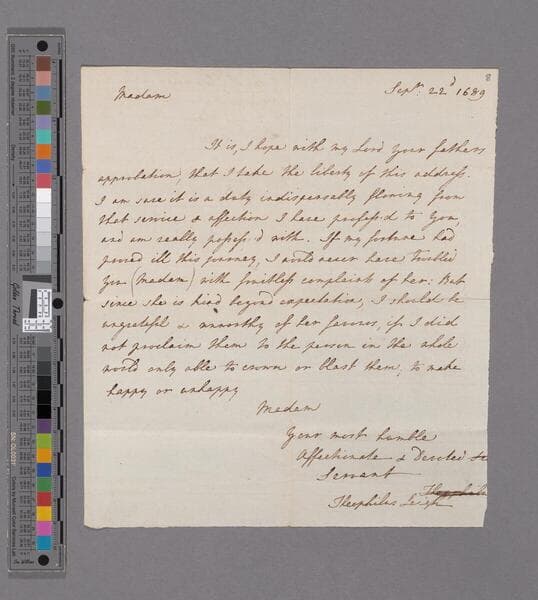 8
Septr. 22d 1689
Madam
It is, I hope with my Lord your fathers
approbation, that I take the liberty of this address.
I am sure it is a duty indispensably flowing from
that service & affection I have profess'd to you,
and am really possess'd with. If my fortune had
proved ill this journey, I would never have troubled
you (Madam) with fruitless complaint of her: But
since she is kind beyond expectation, I should be
ungrateful & unworthy of her favours, if I did
not proclaim them to the person in the whole
world only able to crown or blast them, to make
happy or unhappy
Madam
Your most humble
Affectionate & Devoted
Servant
Theophilus Leigh
Golden Thread